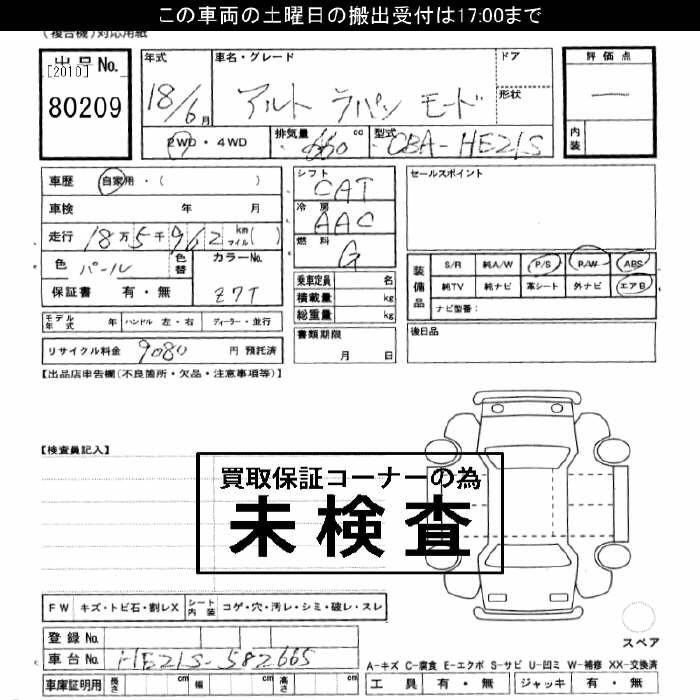 この車両の土曜日の搬出受付は17:00まで
(複合機)対応用紙
出品No.
[2010]
80209
年式
18/6月
車名・グレード
アルト ラパン モード
ドア
形状
2WD・4WD
排気量 660 cc
型式 CBA-HE21S
評価点
—
内装
車歴 自家用・( )
車検 年 月
走行 18万5千962 km マイル( )
色 パール
色替
カラーNo.
Z7T
保証書 有・無
モデル年式 年 ハンドル 左・右 ディーラー・並行
リサイクル料金 9080 円 預託済
シフト
CAT
冷房
AAC
燃料
G
乗車定員 名
積載量 kg
総重量 kg
書類期限
月 日
セールスポイント
装備品
S/R 純A/W P/S P/W ABS
純TV 純ナビ 革シート 外ナビ エアB
ナビ型番:
後日品
【出品店申告欄(不良箇所・欠品・注意事項等)】
【検査員記入】
買取保証コーナーの為
未検査
FW キズ・トビ石・割レX シート内装 コゲ・穴・汚レ・シミ・破レ・スレ
登録No.
車台No. HE21S-582665
車庫証明用 長さ cm 幅 cm 高さ cm
スペア
A-キズ C-腐食 E-エクボ S-サビ U-凹ミ W-補修 XX-交換済
工具 有・無 ジャッキ 有・無